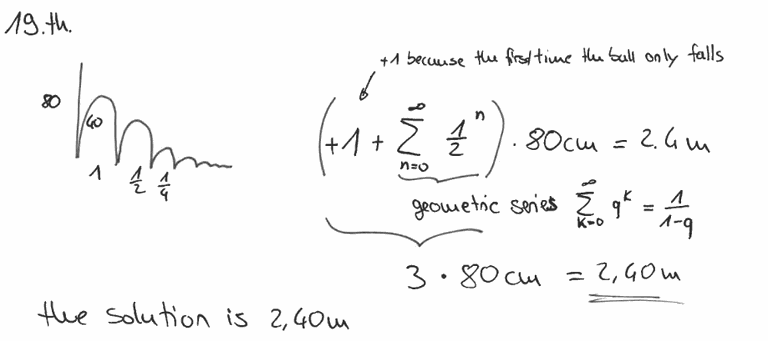 19.th.
+1 because the first time the ball only falls
80
40
1 1/2 1/4
(+1 + ∞∑n=0 1/2^n) · 80cm = 2.4m
geometric series ∞∑k=0 q^k = 1/1-q
3 · 80cm = 2,40m
the solution is 2,40m